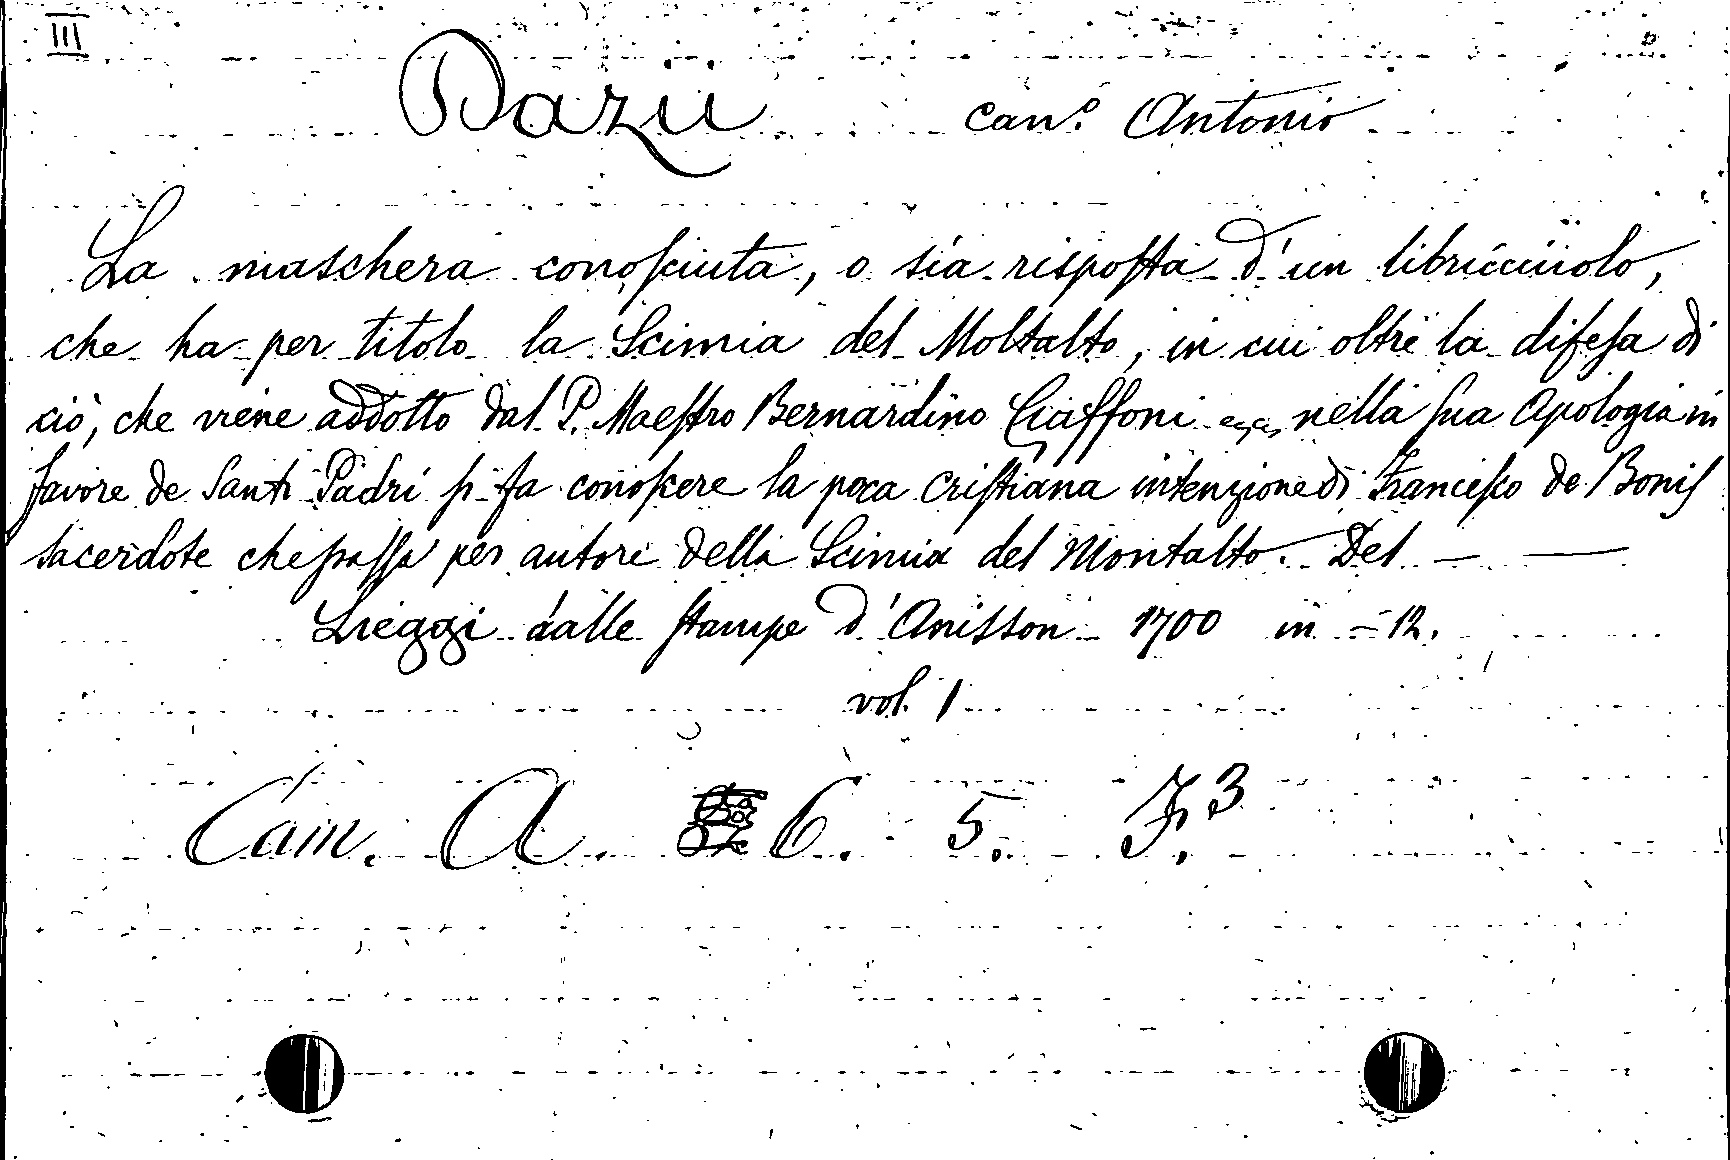 III
Dazii can.º Antonio
La maschera conosciuta, o sia risposta d'un libricciuolo,
che ha per titolo la Scimia del Moltalto, in cui oltre la difesa di
ciò, che viene addotto dal P. Maestro Bernardino Ciaffoni nella sua Apologia in
favore de Santi Padri si fa conoscere la poca cristiana intenzione di Francesco de Bonis
sacerdote che passa per autore della Scimia del Montalto. Del — —
Lieggi dalle stampe d'Anisson 1700 in - 12.
vol. 1
Cam. A. 6. 5. F.3